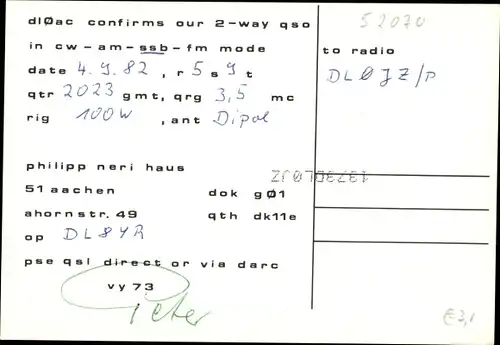 dl0ac confirms our 2-way qso
in cw-am-ssb-fm mode
date 4.9.82, r 5 s 9 t
qtr 2023 gmt, qrg 3,5 mc
rig 100W, ant Dipol
philipp neri haus
51 aachen
dok g01
ahornstr. 49
qth dk11e
op DL8YR
pse qsl direct or via darc
vy 73
Peter
52070
to radio
DL0JZ/P
1373DL0JZ
€3,1